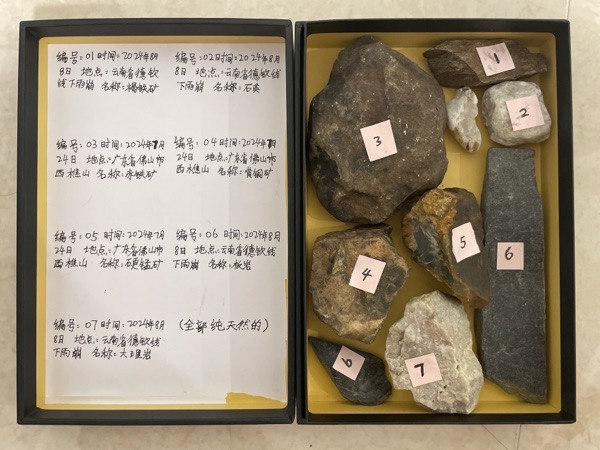 编号:01时间:2024年8月
8日 地点:云南省德钦线
线下雨崩 名称:褐铁矿
编号:02时间:2024年8月
8日 地点:云南省德钦线
下雨崩 名称:石英
编号:03 时间:2024年7月
24日 地点:广东省佛山市
西樵山 名称:赤铁矿
编号:04 时间:2024年7月
24日 地点:广东省佛山市
西樵山 名称:黄铜矿
编号:05 时间:2024年7月
24日 地点:广东省佛山市
西樵山 名称:硬锰矿
编号:06 时间:2024年8月
8日 地点:云南省德钦线
下雨崩 名称:板岩
编号:07 时间:2024年8月
8日 地点:云南省德钦线
下雨崩 名称:大理岩
(全部纯天然的)
1
2
3
4
5
6
6
7